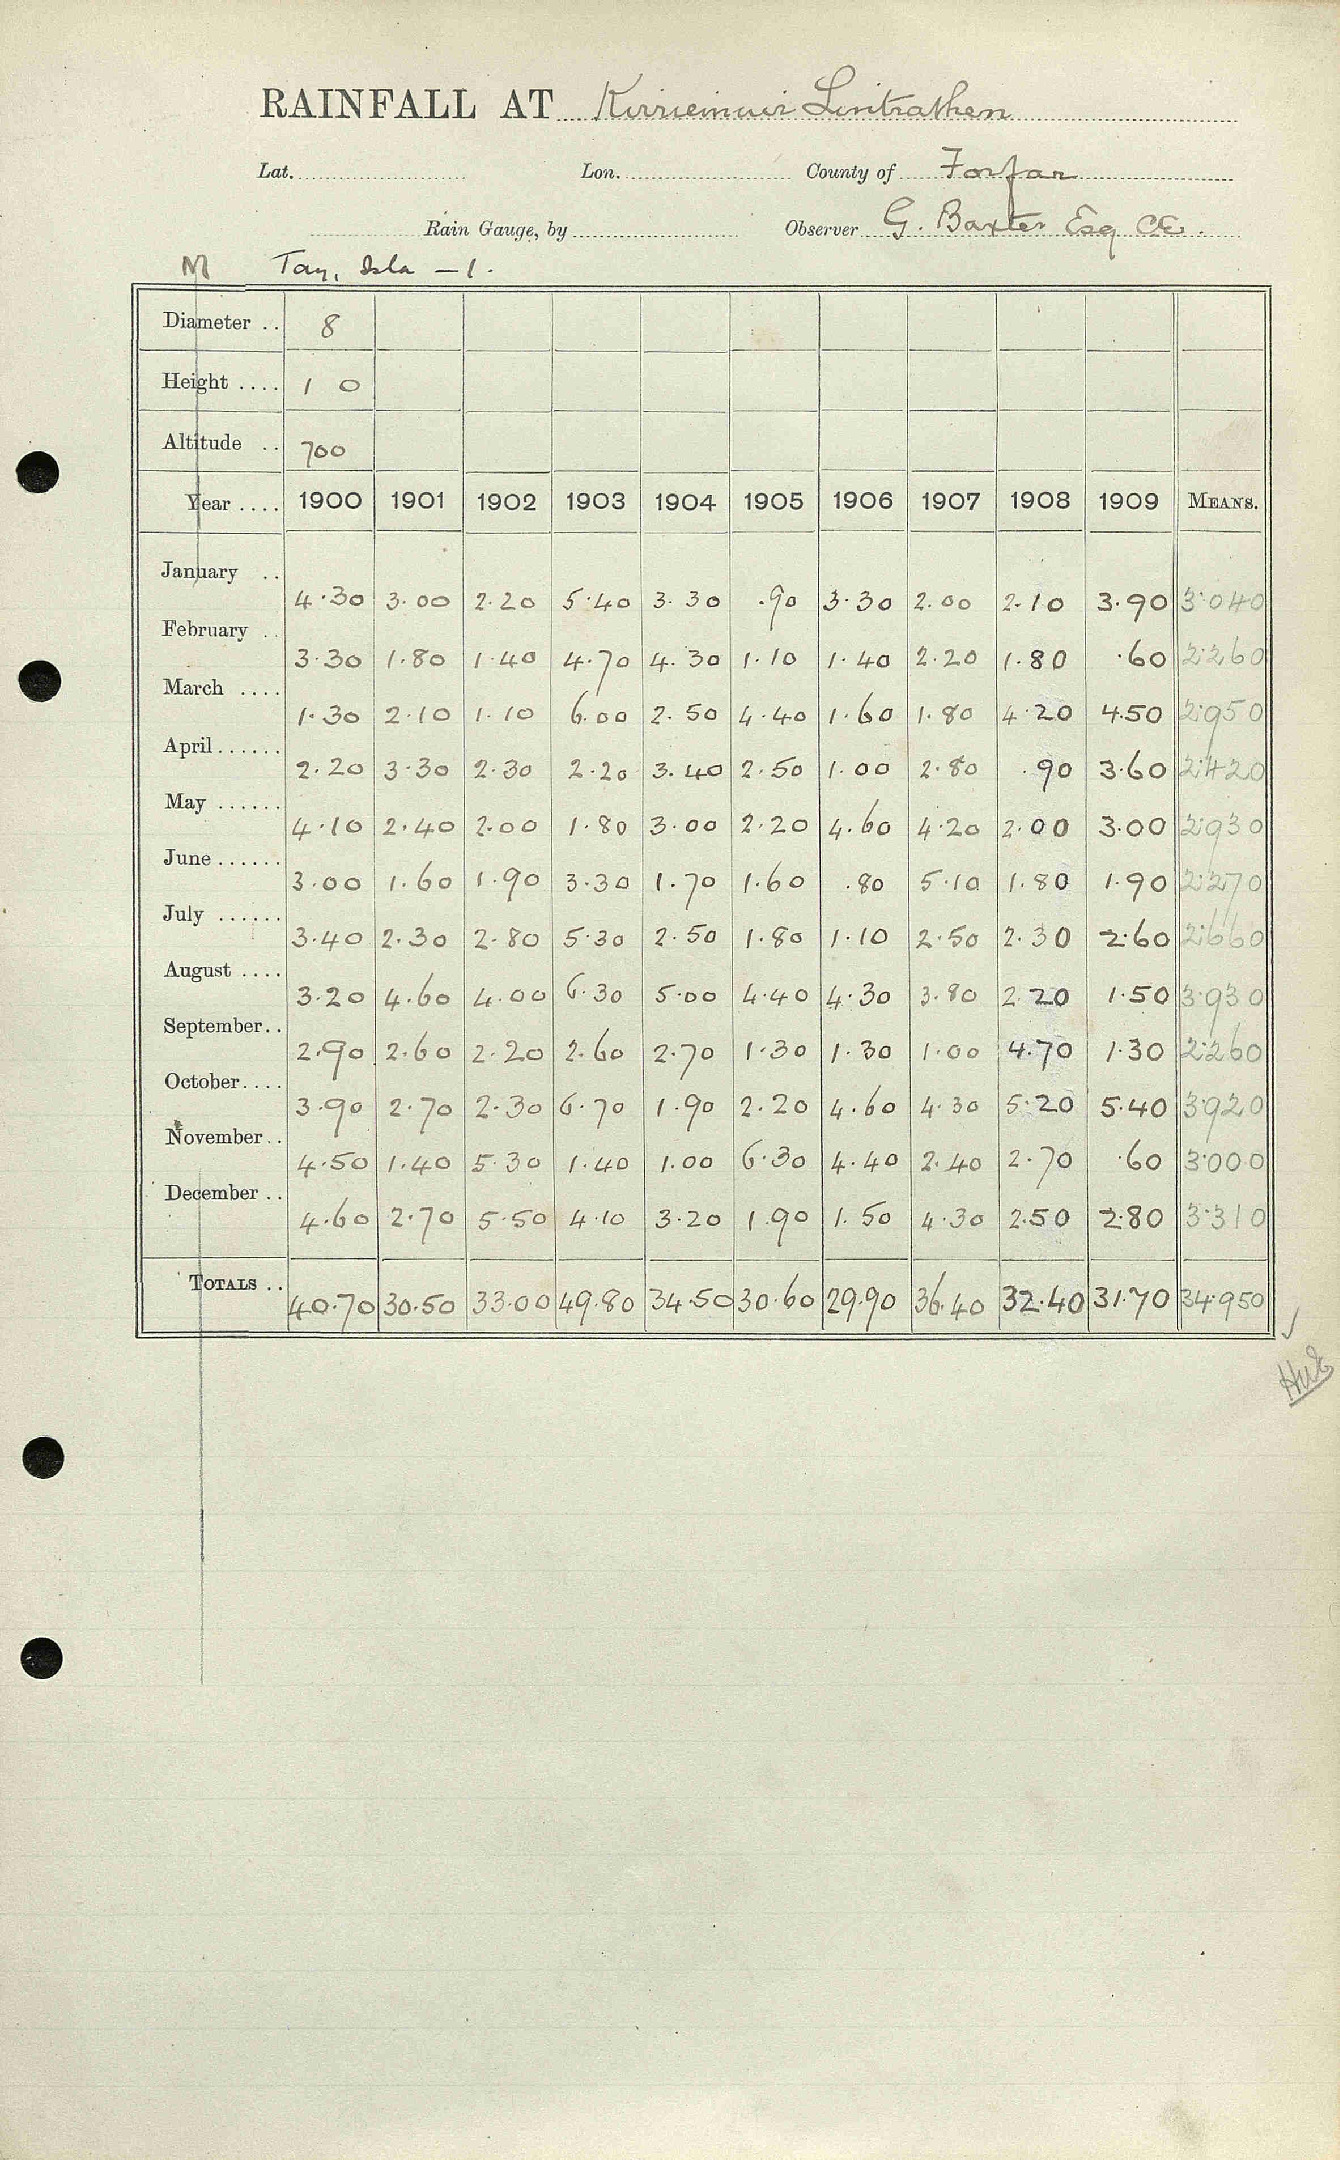 RAINFALL AT Kirriemuir Lintrathen
Lat. Lon. County of Forfar
Rain Gauge, by Observer G. Baxter Esq CE.
M Tay, Isla - 1.
Diameter .. 8
Height .... 1 0
Altitude .. 700
Year .... 1900 1901 1902 1903 1904 1905 1906 1907 1908 1909 MEANS.
January .. 4.30 3.00 2.20 5.40 3.30 .90 3.30 2.00 2.10 3.90 3.040
February .. 3.30 1.80 1.40 4.70 4.30 1.10 1.40 2.20 1.80 .60 2.260
March .... 1.30 2.10 1.10 6.00 2.50 4.40 1.60 1.80 4.20 4.50 2.950
April ...... 2.20 3.30 2.30 2.20 3.40 2.50 1.00 2.80 .90 3.60 2.420
May ...... 4.10 2.40 2.00 1.80 3.00 2.20 4.60 4.20 2.00 3.00 2.930
June ...... 3.00 1.60 1.90 3.30 1.70 1.60 .80 5.10 1.80 1.90 2.270
July ...... 3.40 2.30 2.80 5.30 2.50 1.80 1.10 2.50 2.30 2.60 2.660
August .... 3.20 4.60 4.00 6.30 5.00 4.40 4.30 3.80 2.20 1.50 3.930
September.. 2.90 2.60 2.20 2.60 2.70 1.30 1.30 1.00 4.70 1.30 2.260
October.... 3.90 2.70 2.30 6.70 1.90 2.20 4.60 4.30 5.20 5.40 3.920
November.. 4.50 1.40 5.30 1.40 1.00 6.30 4.40 2.40 2.70 .60 3.000
December .. 4.60 2.70 5.50 4.10 3.20 1.90 1.50 4.30 2.50 2.80 3.310
TOTALS .. 40.70 30.50 33.00 49.80 34.50 30.60 29.90 36.40 32.40 31.70 34.950